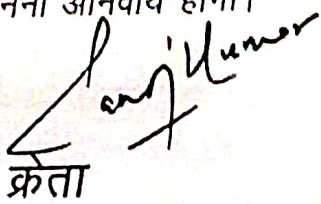 अनिवार्य होगा।
Sanoj Kumar
क्रेता